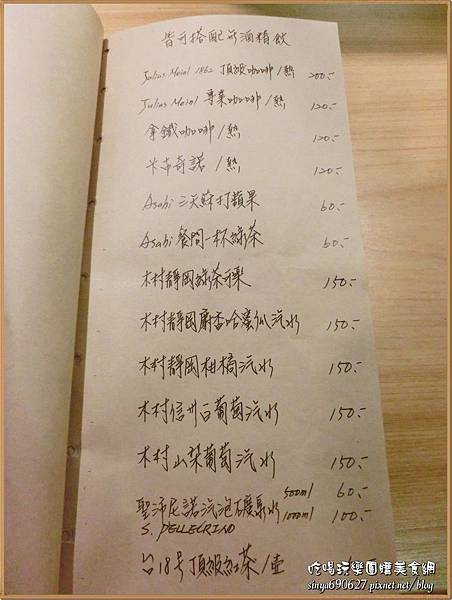 皆可搭配無酒精飲
Julius Meinl 1862 頂級咖啡/熱 200.-
Julius Meinl 專業咖啡/熱 120.-
拿鐵咖啡/熱 120.-
卡布奇諾 /熱 120.-
Asahi 三矢蘇打蘋果 60.-
Asahi 餐間一杯綠茶 60.-
木村靜岡綠茶可樂 150.-
木村靜岡麝香哈蜜瓜汽水 150.-
木村靜岡柑橘汽水 150.-
木村信州白葡萄汽水 150.-
木村山梨葡萄汽水 150.-
聖沛尼諾汽泡礦泉水 500ml 60.-
S. PELLEGRINO 1000ml 100.-
台18号頂級紅茶/壺
吃喝玩樂團購美食網
sinya690627.pixnet.net/blog